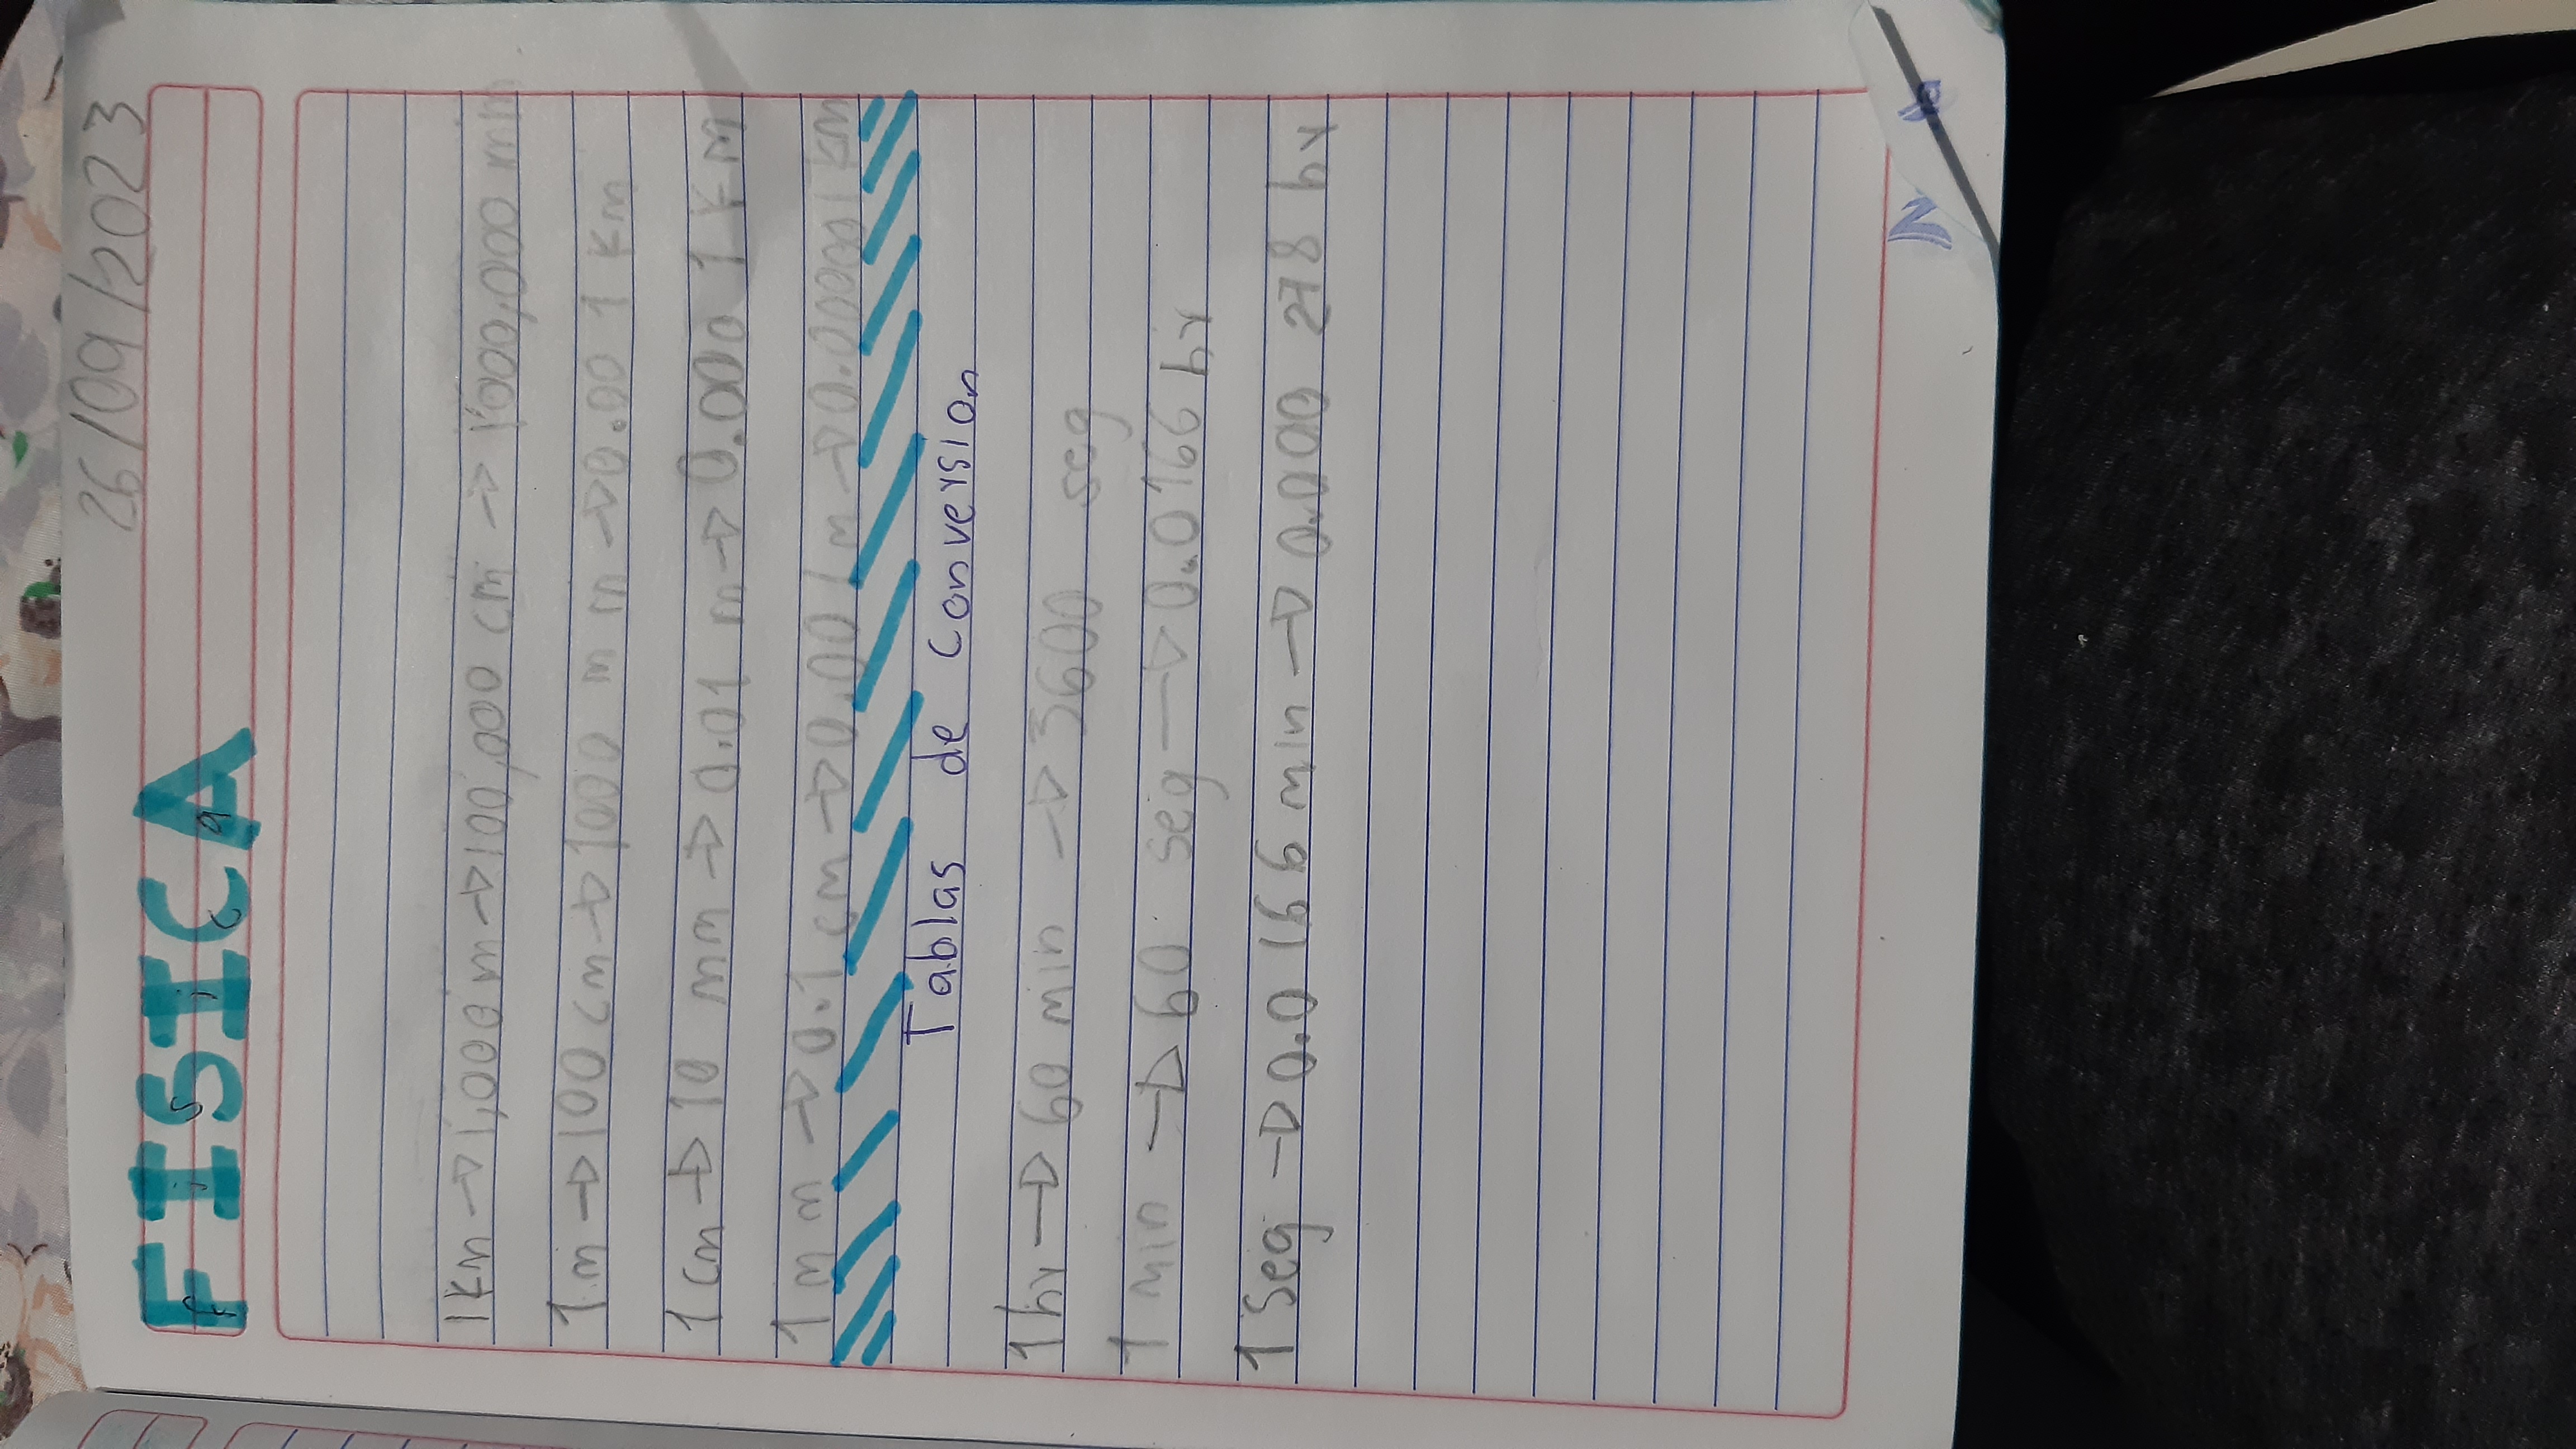 26/09/2023
FISICA
1km → 1,000 m → 100,000 cm → 1'000,000 mm
1 m → 100 cm → 1000 mm → 0.001 km
1 cm → 10 mm → 0.01 m → 0.0001 km
1 mm → 0.1 cm → 0.001 m → 0.000001 km
Tablas de Conversion
1 hr → 60 min → 3600 seg
1 min → 60 seg → 0.0166 hr
1 Seg → 0.0166 min → 0.000 278 hr